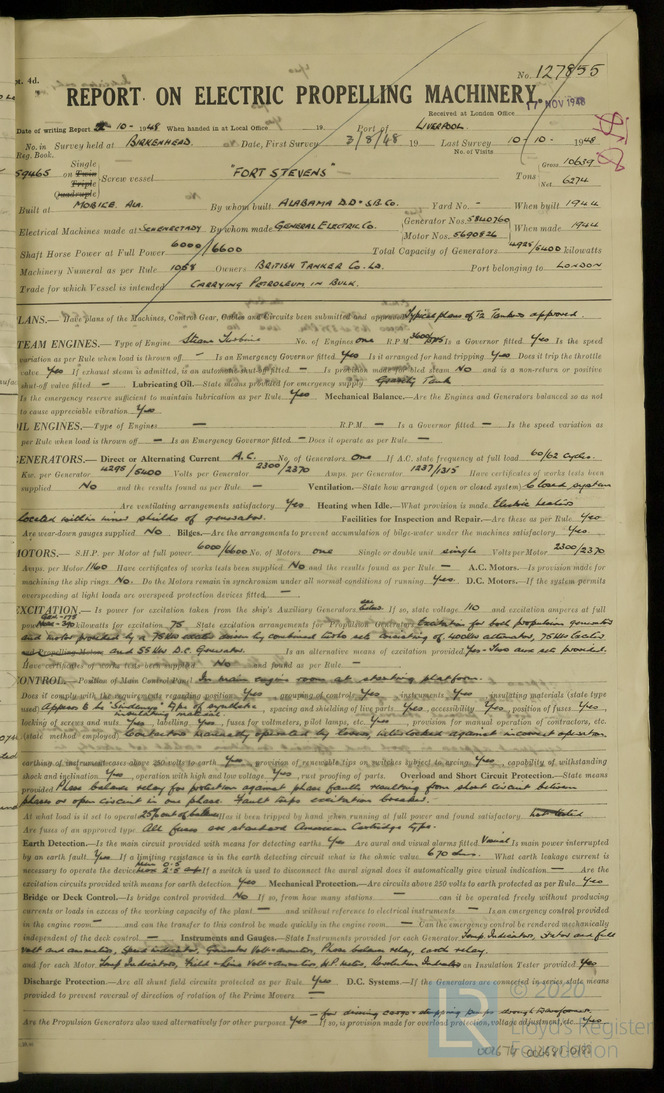 4d.
No. 127855
REPORT ON ELECTRIC PROPELLING MACHINERY.
17 NOV 1948
Received at London Office
Date of writing Report 10 - 1948 When handed in at Local Office 19 Port of LIVERPOOL
No. in Survey held at BIRKENHEAD Date, First Survey 3/8/48 19 Last Survey 10 - 10 - 1948
Reg. Book. No. of Visits
59465 on Single Twin Triple Quadruple Screw vessel "FORT STEVENS" Tons Gross 10639 Net 6274
Built at MOBILE. ALA. By whom built ALABAMA D.D. & S.B. Co. Yard No. - When built 1944
Electrical Machines made at SCHENECTADY By whom made GENERAL ELECTRIC Co. Generator Nos. 5840760 Motor Nos. 5690826 When made 1944
Shaft Horse Power at Full Power 6000/6600 Total Capacity of Generators /5400 kilowatts
Machinery Numeral as per Rule 1058 Owners BRITISH TANKER Co. LD. Port belonging to LONDON
Trade for which Vessel is intended CARRYING PETROLEUM IN BULK.
PLANS.—Have plans of the Machines, Control Gear, Cables and Circuits been submitted and approved Typical plans of T2 Tankers approved.
STEAM ENGINES.—Type of Engines Steam Turbine No. of Engines one R.P.M. Is a Governor fitted Yes Is the speed
variation as per Rule when load is thrown off - Is an Emergency Governor fitted Yes Is it arranged for hand tripping Yes Does it trip the throttle
valve Yes If exhaust steam is admitted, is an automatic shut-off fitted - Is provision made for bled steam No and is a non-return or positive
shut-off valve fitted - Lubricating Oil.—State means provided for emergency supply Gravity Tank
Is the emergency reserve sufficient to maintain lubrication as per Rule Yes Mechanical Balance.—Are the Engines and Generators balanced so as not
to cause appreciable vibration Yes
OIL ENGINES.—Type of Engines — R.P.M. — Is a Governor fitted — Is the speed variation as
per Rule when load is thrown off — Is an Emergency Governor fitted — Does it operate as per Rule —
GENERATORS.—Direct or Alternating Current A.C. No. of Generators One If A.C. state frequency at full load 60/62 Cycles.
Kw. per Generator /5400 Volts per Generator 2300/2370 Amps. per Generator 1237/1315 Have certificates of works tests been
supplied No and the results found as per Rule — Ventilation.—State how arranged (open or closed system) Closed system
Are ventilating arrangements satisfactory Yes Heating when Idle.—What provision is made Electric heaters
located within inner shields of generator. Facilities for Inspection and Repair.—Are these as per Rule Yes
Are wear-down gauges supplied No Bilges.—Are the arrangements to prevent accumulation of bilge-water under the machines satisfactory Yes
MOTORS.—S.H.P. per Motor at full power 6000/6600 No. of Motors one Single or double unit single Volts per Motor 2300/2370
Amps. per Motor 1160 Have certificates of works tests been supplied No and the results found as per Rule — A.C. Motors.—Is provision made for
machining the slip rings No. Do the Motors remain in synchronism under all normal conditions of running Yes D.C. Motors.—If the system permits
overspeeding at light loads are overspeed protection devices fitted —
EXCITATION.—Is power for excitation taken from the ship's Auxiliary Generators If so, state voltage 110 and excitation amperes at full
power kilowatts for excitation 75 State excitation arrangements for Propulsion Generators Excitation for both propulsion generator
and motor provided by a 75 KW exciter driven by combined turbo sets consisting of 400KW alternator, 75KW Exciter
and Propelling Motors and 55 KW D.C. Generator. Is an alternative means of excitation provided Yes - Two aux sets provided.
Have certificates of works tests been supplied No and found as per Rule —
CONTROL.—Position of Main Control Panel In main engine room at starting platform.
Does it comply with the requirements regarding position Yes, grouping of control Yes, instruments Yes, insulating materials (state type
used) Appears to be "Sindanyo" type of synthetic insulating material, spacing and shielding of live parts Yes, accessibility Yes, position of fuses Yes,
locking of screws and nuts Yes, labelling Yes, fuses for voltmeters, pilot lamps, etc. Yes, provision for manual operation of contractors, etc.
(state method employed) Contactors manually operated by levers, interlocked against incorrect operation
earthing of instrument cases above 250 volts to earth Yes, provision of renewable tips on switches subject to arcing Yes, capability of withstanding
shock and inclination Yes, operation with high and low voltage Yes, rust proofing of parts. Overload and Short Circuit Protection.—State means
provided Phase balance relay for protection against phase faults resulting from short circuit between
phases or open circuit in one phase. Fault trips excitation breaker.
At what load is it set to operate 25% out of balance Has it been tripped by hand when running at full power and found satisfactory Not tested
Are fuses of an approved type All fuses are standard American Cartridge type.
Earth Detection.—Is the main circuit provided with means for detecting earths Yes Are aural and visual alarms fitted Visual Is main power interrupted
by an earth fault Yes If a limiting resistance is in the earth detecting circuit what is the ohmic value 670 ohms. What earth leakage current is
necessary to operate the device If a switch is used to disconnect the aural signal does it automatically give visual indication — Are the
excitation circuits provided with means for earth detection Yes Mechanical Protection.—Are circuits above 250 volts to earth protected as per Rule Yes
Bridge or Deck Control.—Is bridge control provided No If so, from how many stations — can it be operated freely without producing
currents or loads in excess of the working capacity of the plant — and without reference to electrical instruments — Is an emergency control provided
in the engine room — and can the transfer to this control be made quickly in the engine room — Can the emergency control be rendered mechanically
independent of the deck control — Instruments and Gauges.—State Instruments provided for each Generator Temp. Indicator, Stator and field
volt and ammeters, Speed indicator, Generator Volt & Ammeter, Phase balance relay, earth relay.
and for each Motor Temp Indicators, Field & Line Volt & Ammeter, H.P. meter, Revolution Indicator an Insulation Tester provided Yes
Discharge Protection.—Are all shunt field circuits protected as per Rule Yes D.C. Systems.—If the Generators are connected in series, state means
provided to prevent reversal of direction of rotation of the Prime Movers —
Are the Propulsion Generators also used alternatively for other purposes Yes - for driving cargo & stripping pumps through transformer. If so, is provision made for overload protection, voltage adjustment, etc. Yes
LR © 2020
Lloyd's Register
Foundation